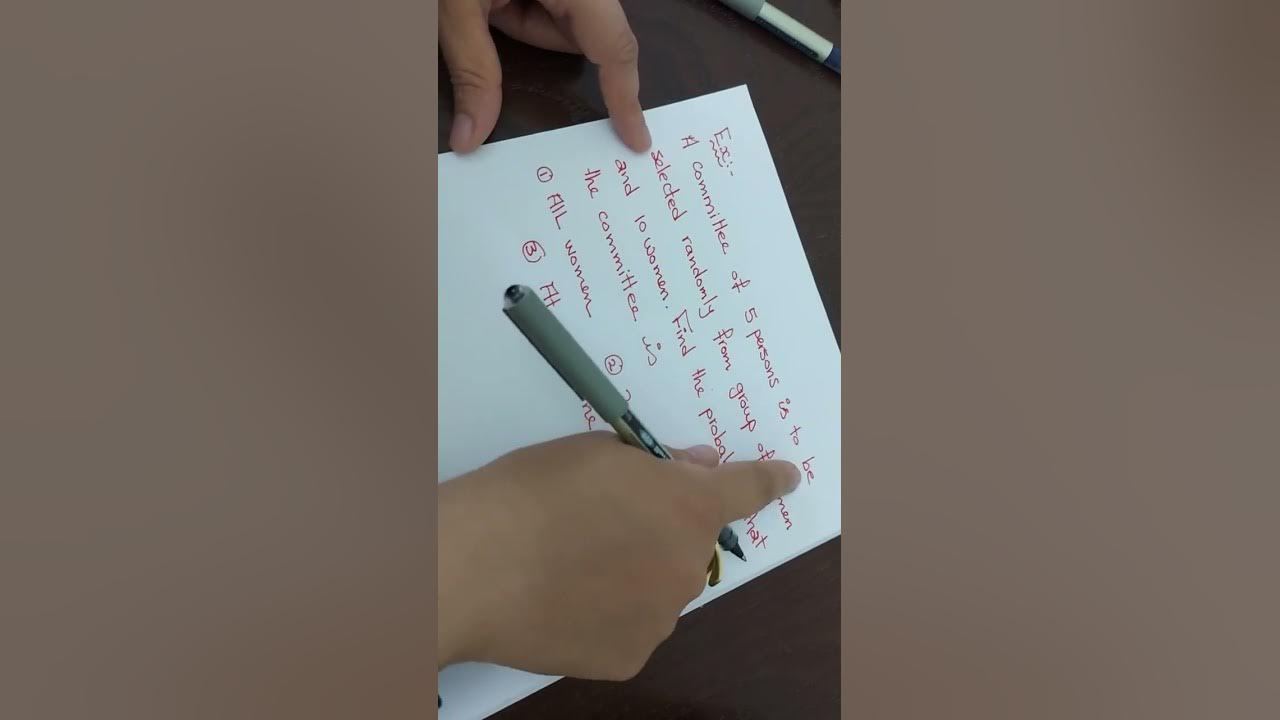 Ex:-
A committee of 5 persons is to be
selected randomly from group of men
and 10 women. Find the that
the committee is
① All women ②
③